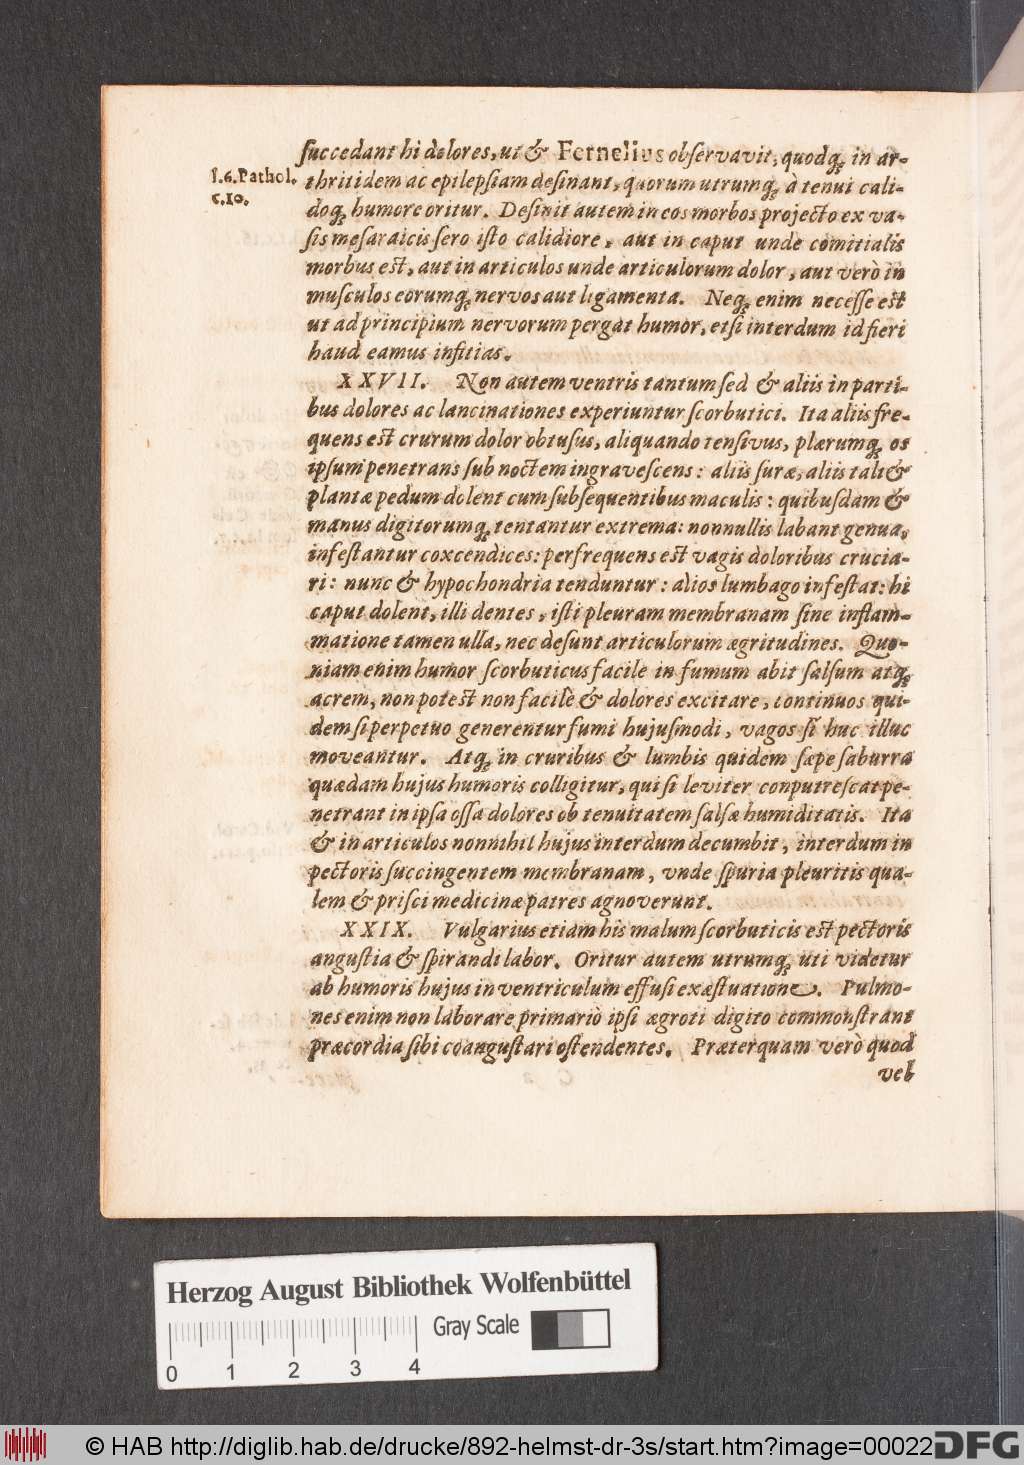 succedant hi dolores, ut & Fernelius observavit, quodq; in ar-
l.6. Pathol.
c.10.
thritidem ac epilepsiam desinant, quorum utrumq; à tenui cali-
doq; humore oritur. Desinit autem in eos morbos projecto ex va-
sis mesaraicis sero isto calidiore, aut in caput unde comitialis
morbus est, aut in articulos unde articulorum dolor, aut verò in
musculos eorumq; nervos aut ligamenta. Neq; enim necesse est
ut ad principium nervorum pergat humor, etsi interdum id fieri
haud eamus infitias.
XXVII. Non autem ventris tantum sed & aliis in parti-
bus dolores ac lancinationes experiuntur scorbutici. Ita aliis fre-
quens est crurum dolor obtusus, aliquando tensivus, plærumq; os
ipsum penetrans sub noctem ingravescens: aliis suræ, aliis tali &
plantæ pedum dolent cum subsequentibus maculis: quibusdam &
manus digitorumq; tentantur extrema: nonnullis labant genua,
infestantur coxcendices: perfrequens est vagis doloribus crucia-
ri: nunc & hypochondria tenduntur: alios lumbago infestat: hi
caput dolent, illi dentes, isti pleuram membranam sine inflam-
matione tamen ulla, nec desunt articulorum ægritudines. Quo-
niam enim humor scorbuticus facile in fumum abit salsum atq;
acrem, non potest non facilè & dolores excitare, continuos qui-
dem si perpetuo generentur fumi hujusmodi, vagos si huc illuc
moveantur. Atq; in cruribus & lumbis quidem sæpe saburra
quædam hujus humoris colligitur, qui si leviter conputrescat pe-
netrant in ipsa ossa dolores ob tenuitatem salsæ humiditatis. Ita
& in articulos nonnihil hujus interdum decumbit, interdum in
pectoris succingentem membranam, vnde spuria pleuritis qua-
lem & prisci medicinæ patres agnoverunt.
XXIX. Vulgarius etiam his malum scorbuticis est pectoris
angustia & spirandi labor. Oritur autem utrumq; uti videtur
ab humoris hujus in ventriculum effusi exæstuatione. Pulmo-
nes enim non laborare primariò ipsi ægroti digito commonstrant
præcordia sibi coangustari ostendentes. Præterquam verò quod
vel
Herzog August Bibliothek Wolfenbüttel
Gray Scale
0 1 2 3 4
© HAB http://diglib.hab.de/drucke/892-helmst-dr-3s/start.htm?image=00022
DFG